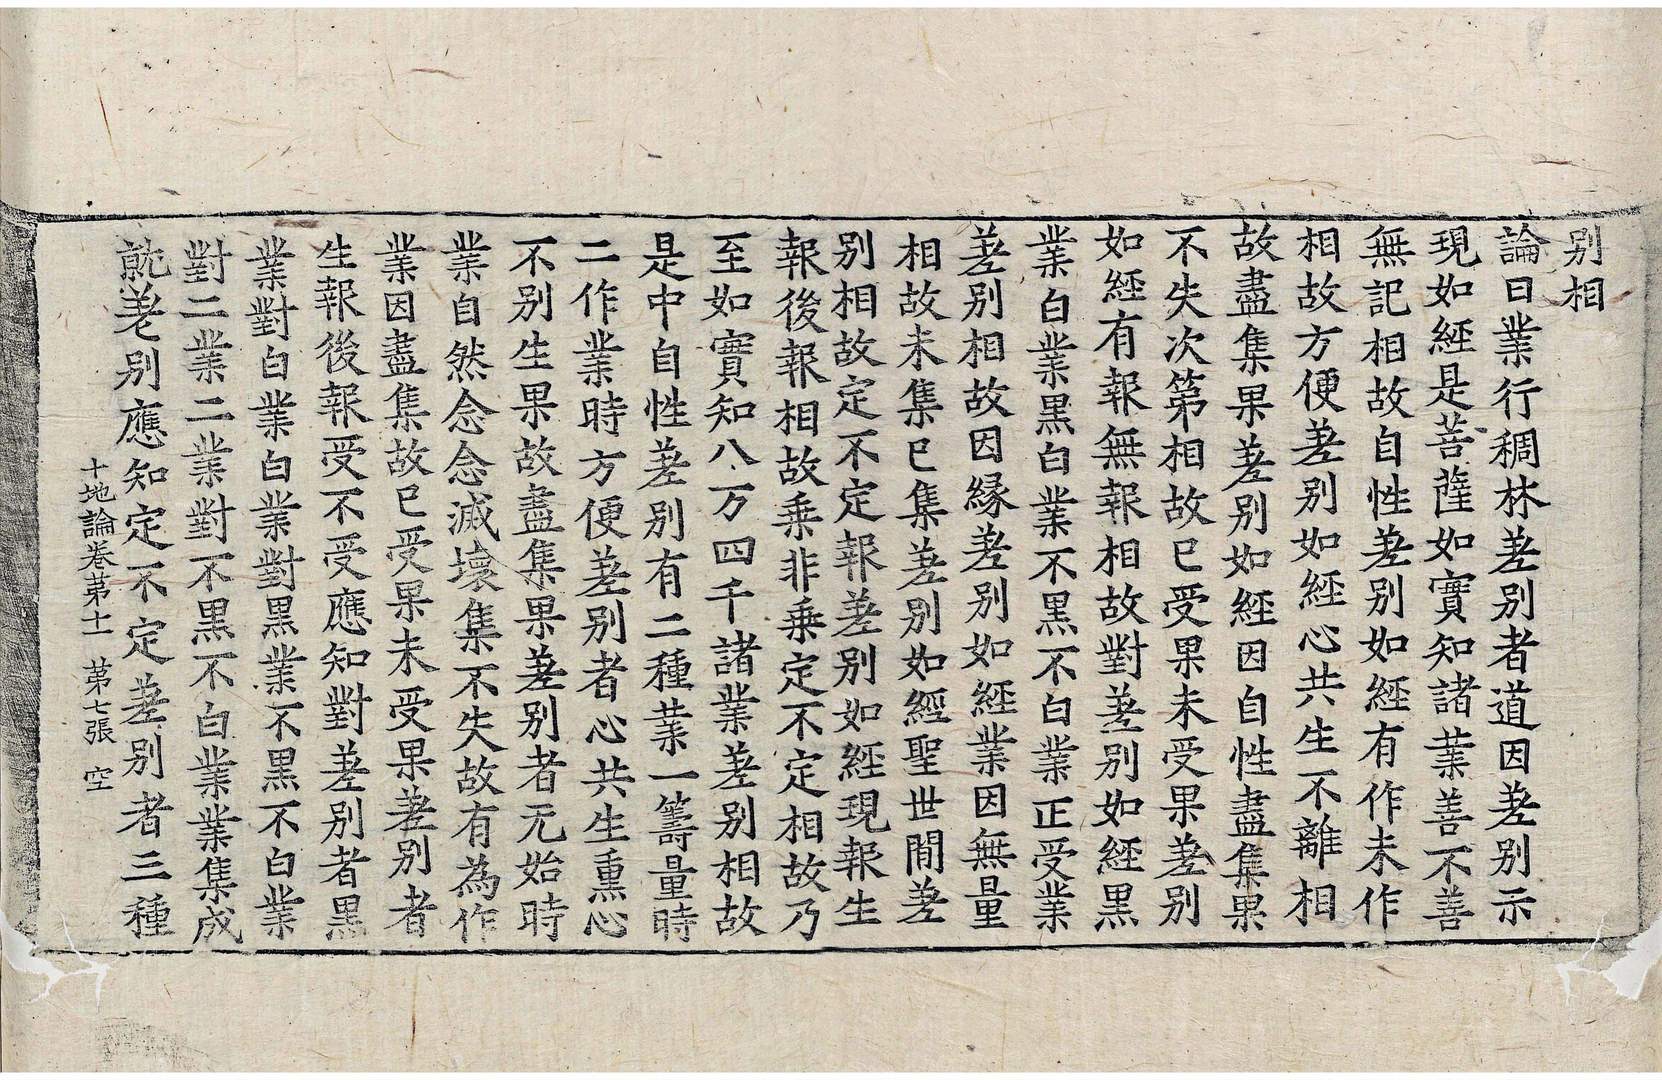 别相
論曰業行稠林差别者道因差别示
現如經是菩薩如實知諸業善不善
無記相故自性差别如經有作未作
相故方便差别如經心共生不離相
故盡集果差别如經因自性盡集果
不失次第相故已受果未受果差别
如經有報無報相故對差别如經黒
業白業黒白業不黒不白業正受業
差别相故因縁差别如經業因無量
相故未集已集差别如經聖世間差
别相故定不定報差别如經現報生
報後報相故乗非乗定不定相故乃
至如實知八万四千諸業差别相故
是中自性差别有二種業一籌量時
二作業時方便差别者心共生熏心
不别生果故盡集果差别者无始時
業自然念念滅壞集不失故有為作
業因盡集故已受果未受果差别者
生報後報受不受應知對差别者黒
業對白業白業對黒業不黒不白業
對二業二業對不黒不白業業集成
就差别應知定不定差别者三種
十地論卷第十一 第七張 空